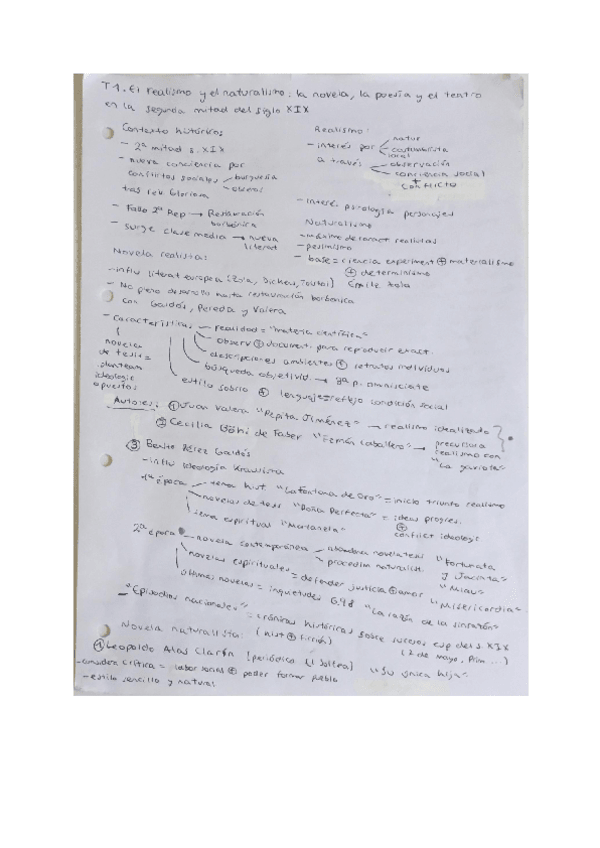 T1. El realismo y el naturalismo: la novela, la poesía y el teatro
en la segunda mitad del siglo XIX
Contexto histórico:
- 2ª mitad s. XIX
- nueva conciencia por
conflictos sociales burguesía
obreros
tras rev. Gloriosa
- Fallo 2ª Rep → Restauración
borbónica
- surge clase media → nueva
literat
Realismo:
- interés por natur
costumbrista
local
a través observación
conciencia social
+
conflicto
- interés psicología personajes
Naturalismo
- máximo de caract realistas
- pesimismo
- base = ciencia experiment ⊕ materialismo
⊕ determinismo
Émile Zola
Novela realista:
- influ literat europea (Zola, Dickens, Tolstoi)
- No pleno desarrollo hasta restauración borbónica
con Galdós, Pereda y Valera
- características realidad = "materia científica"
observ ⊕ document. para reproducir exact.
descripciones ambientes ⊕ retratos individuos
búsqueda objetivid. → 3ª p. omnisciente
estilo sobrio ⊕ lenguaje = reflejo condición social
novelas
de tesis =
plantean
ideologic
opuestos
Autores: ① Juan Valera "Pepita Jiménez" → realismo idealizado
② Cecilia Böhl de Faber "Fernán Caballero" → precursora
realismo con
"La gaviota"
③ Benito Pérez Galdós
- influ ideología Krausismo
1ª época tema hist "La fontana de Oro" = inicio triunfo realismo
novelas de tesis "Doña Perfecta" = ideas progres.
⊕
conflict ideologic
tema espiritual "Marianela"
2ª época novela contemporánea abandona novela tesis "Fortunata
procedim naturalist. y Jacinta"
"Miau"
novelas espirituales = defender justicia ⊕ amor "Misericordia"
últimas novelas = inquietudes G.98 "La razón de la sinrazón"
- "Episodios nacionales" = crónicas históricas sobre sucesos esp del s. XIX
(hist ⊕ ficción) (2 de mayo, Prim...)
Novela naturalista:
① Leopoldo Alas Clarín (periódico El Solfeo) "Su única hija"
= labor social ⊕ poder formar pueblo
- estilo sencillo y natural